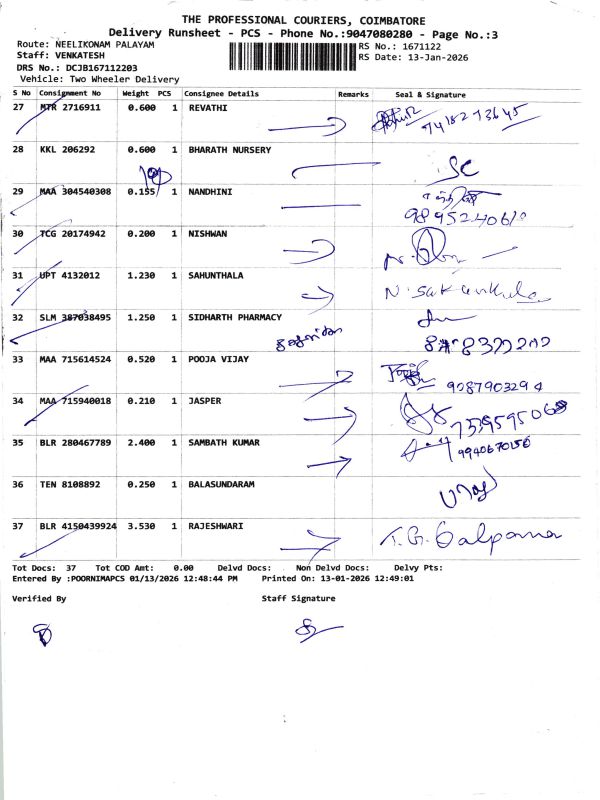 THE PROFESSIONAL COURIERS, COIMBATORE
Delivery Runsheet - PCS - Phone No.:9047080280 - Page No.:3
Route: NEELIKONAM PALAYAM RS No.: 1671122
Staff: VENKATESH RS Date: 13-Jan-2026
DRS No.: DCJB167112203
Vehicle: Two Wheeler Delivery
S No Consignment No Weight PCS Consignee Details Remarks Seal & Signature
27 MTR 2716911 0.600 1 REVATHI
28 KKL 206292 0.600 1 BHARATH NURSERY
SC
29 MAA 304540308 0.155 1 NANDHINI
30 TCG 20174942 0.200 1 NISHWAN
31 UPT 4132012 1.230 1 SAHUNTHALA
N. Sakunthala
32 SLM 387038495 1.250 1 SIDHARTH PHARMACY
33 MAA 715614524 0.520 1 POOJA VIJAY
9287903294
34 MAA 715940018 0.210 1 JASPER
35 BLR 280467789 2.400 1 SAMBATH KUMAR
9940670150
36 TEN 8108892 0.250 1 BALASUNDARAM
37 BLR 4150439924 3.530 1 RAJESHWARI
T.G. Galpana
Tot Docs: 37 Tot COD Amt: 0.00 Delvd Docs: Non Delvd Docs: Delvy Pts:
Entered By :POORNIMAPCS 01/13/2026 12:48:44 PM Printed On: 13-01-2026 12:49:01
Verified By Staff Signature